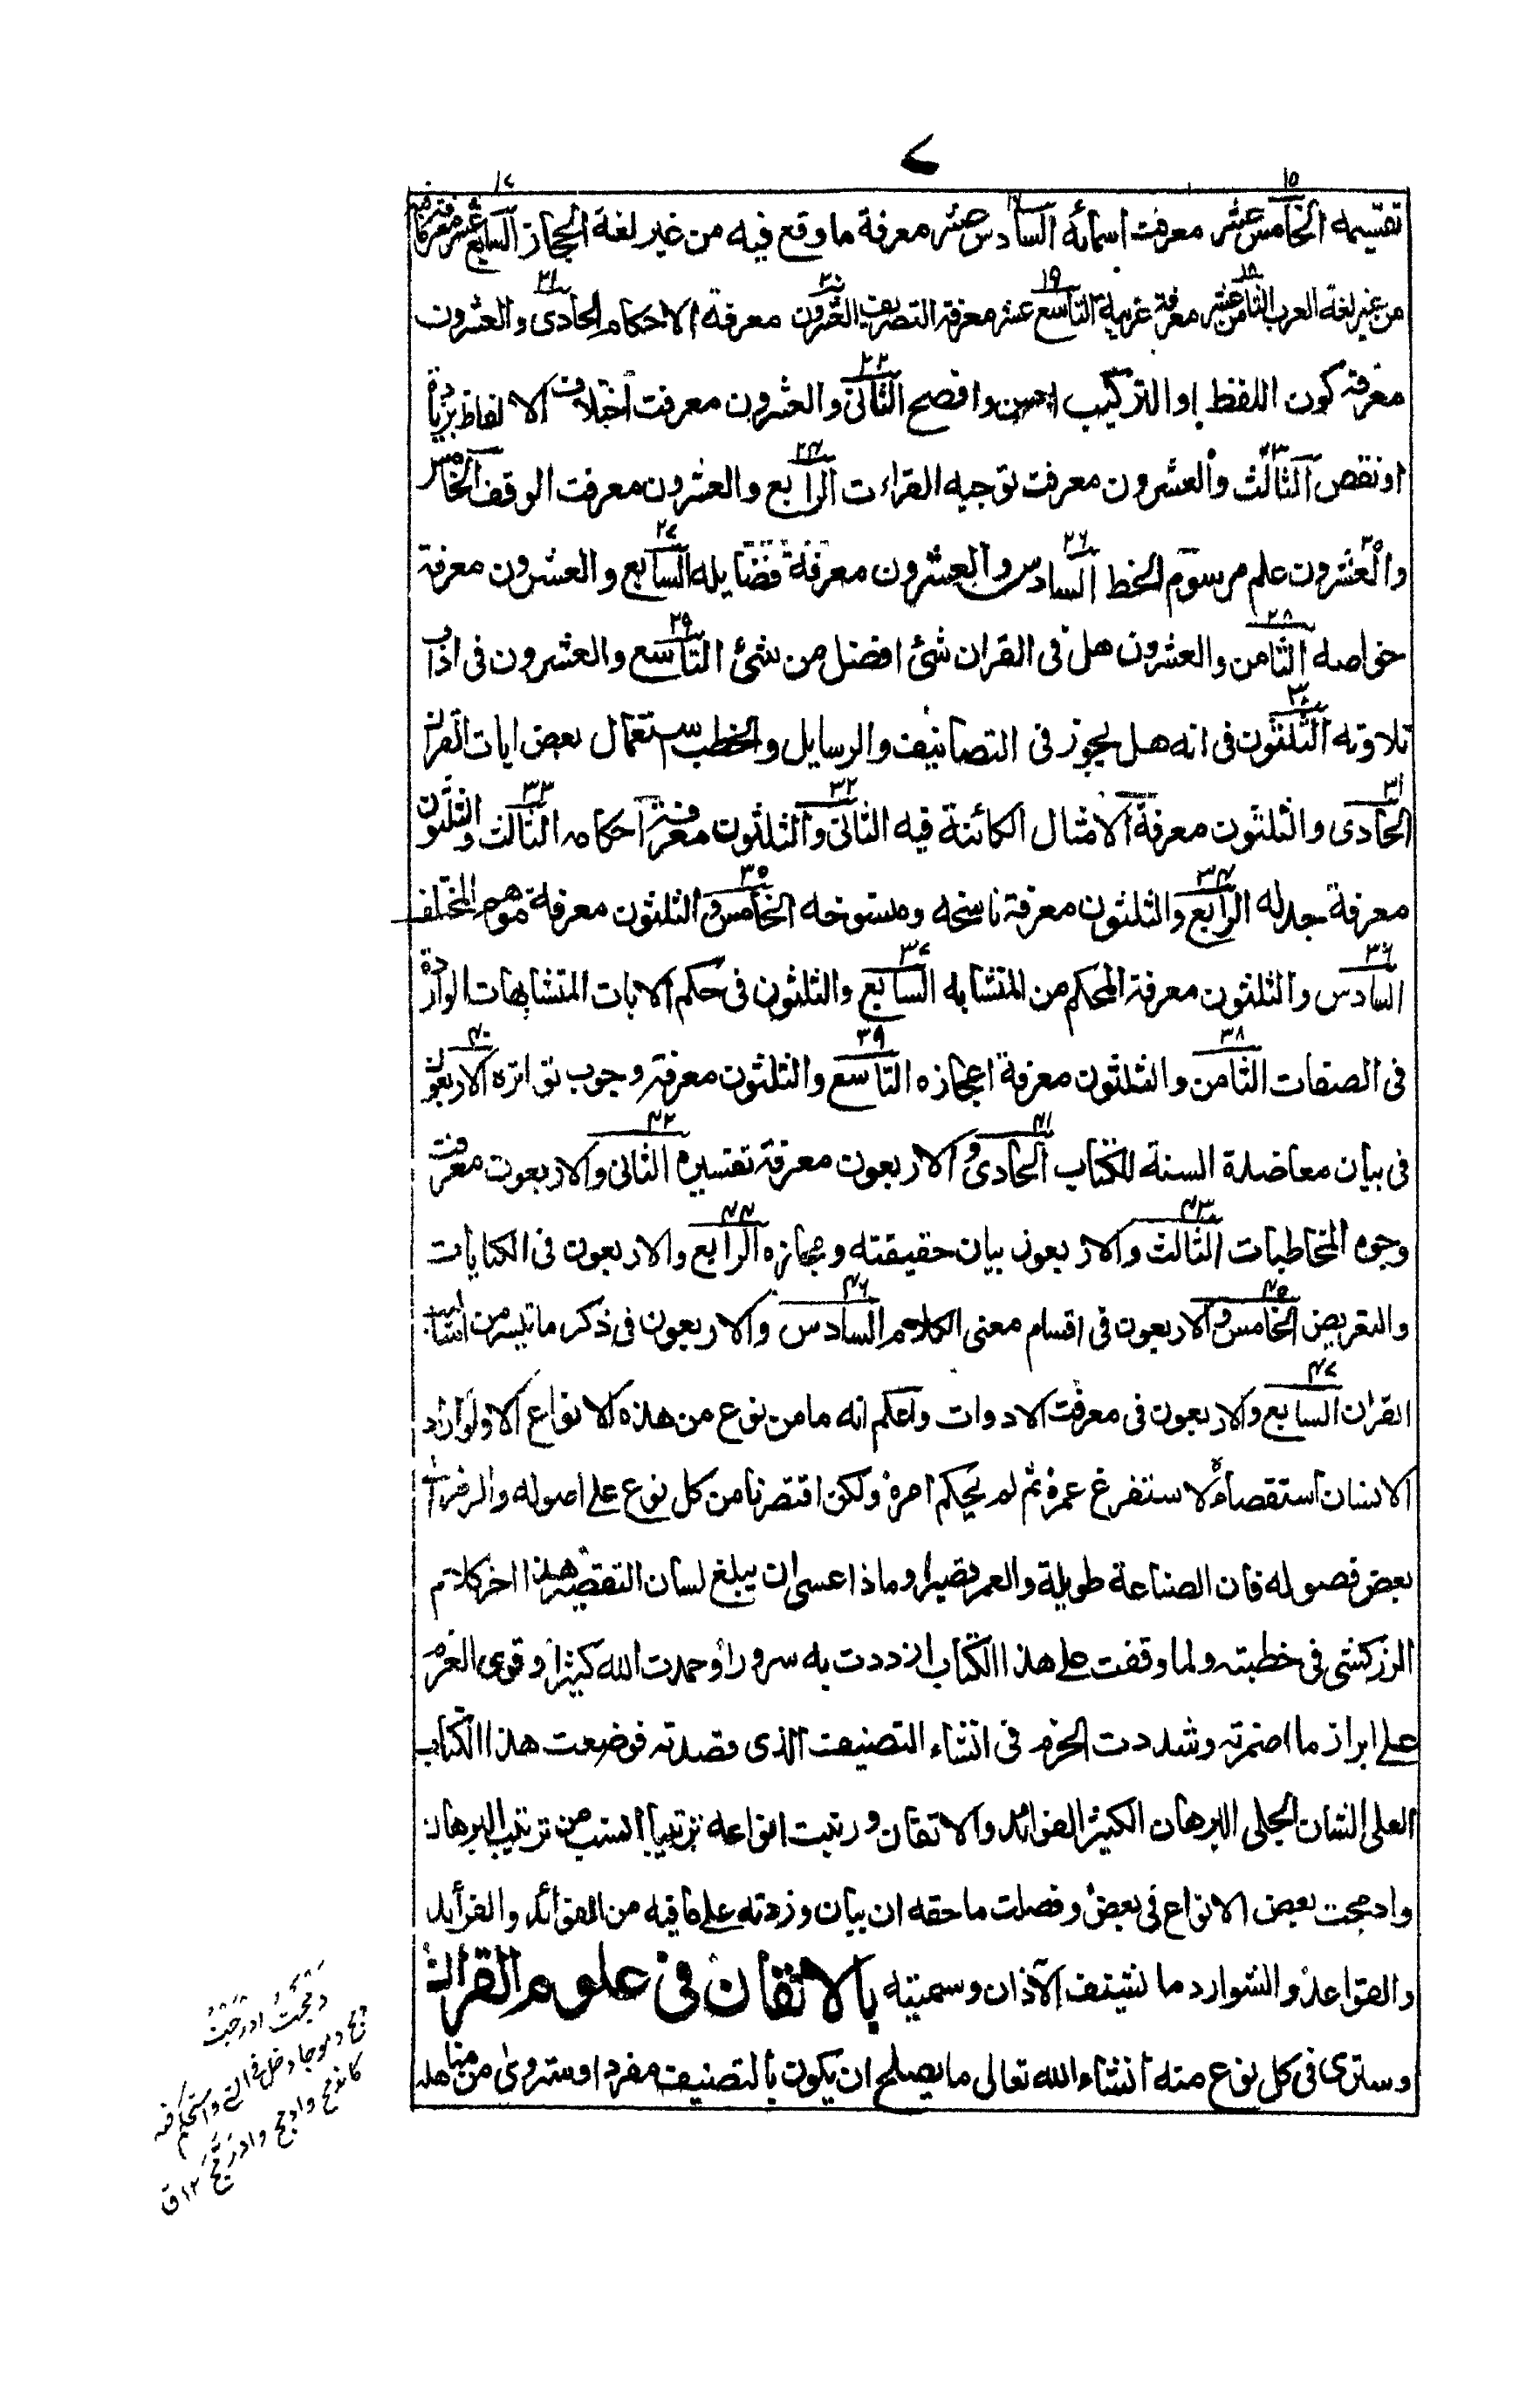 ٧
تقسيمه الخامس عشر معرفت اسمائه السادس عشر معرفة ما وقع فيه من غير لغة الحجاز السابع عشر معرفة ما فيه
من غير لغة العرب الثامن عشر معرفة غريبه التاسع عشر معرفة التصريف العشرون معرفة الاحكام الحادى والعشرون
معرفة كون اللفظ او التركيب احسن وافصح الثانى والعشرون معرفت اختلاف الالفاظ بزيادة
او نقص الثالث والعشرون معرفت توجيه القراءت الرابع والعشرون معرفت الوقف الخامس
والعشرون علم مرسوم الخط السادس والعشرون معرفة فضايله السابع والعشرون معرفة
خواصه الثامن والعشرون هل فى القران شئ افضل من شئ التاسع والعشرون فى اداب
تلاوته الثلثون فى انه هل يجوز فى التصانيف والرسايل والخطب استعمال بعض ايات القران
الحادى والثلثون معرفة الامثال الكائنة فيه الثانى والثلثون معرفة احكامه الثالث والثلثون
معرفة جدله الرابع والثلثون معرفة ناسخه ومنسوخه الخامس والثلثون معرفة موهم المختلف
السادس والثلثون معرفة المحكم من المتشابه السابع والثلثون فى حكم الايات المتشابهات الواردة
فى الصفات الثامن والثلثون معرفة اعجازه التاسع والثلثون معرفة وجوب تواتره الاربعون
فى بيان معاضدة السنة للكتاب الحادى والاربعون معرفة تفسيره الثانى والاربعون معرفت
وجوه المخاطبات الثالث والاربعون بيان حقيقته ومجازه الرابع والاربعون فى الكنايات
والتعريض الخامس والاربعون فى اقسام معنى الكلام السادس والاربعون فى ذكر ما تيسر من اساليب
القران السابع والاربعون فى معرفت الادوات واعلم انه ما من نوع من هذه الانواع الا ولو اراد
الانسان استقصاءه لاستفرغ عمره ثم لم يحكم امره ولكن اقتصرنا من كل نوع على اصوله والرمز الى
بعض فصوله فان الصناعة طويلة والعمر قصير وماذا عسى ان يبلغ لسان التقصير هذا اخر كلام
الزركشى فى خطبته ولما وقفت على هذا الكتاب ازددت به سرورا وحمدت الله كثيرا وقوى العزم
على ابراز ما اضمرته وشددت الحزم فى انشاء التصنيف الذى قصدته فوضعت هذا الكتاب
العلى الشان الجلى البرهان الكثير الفوائد والاتقان ورتبت انواعه ترتيبا انسب من ترتيب البرهان
وادمجت بعض الانواع فى بعض وفصلت ما حقه ان يبان وزدته على ما فيه من الفوائد والفرائد
والقواعد والشوارد ما يشنف الآذان وسميته بالاتقان فى علوم القران
وسترى فى كل نوع منه انشاء الله تعالى ما يصلح ان يكون بالتصنيف مفردا وستروى من مناهله